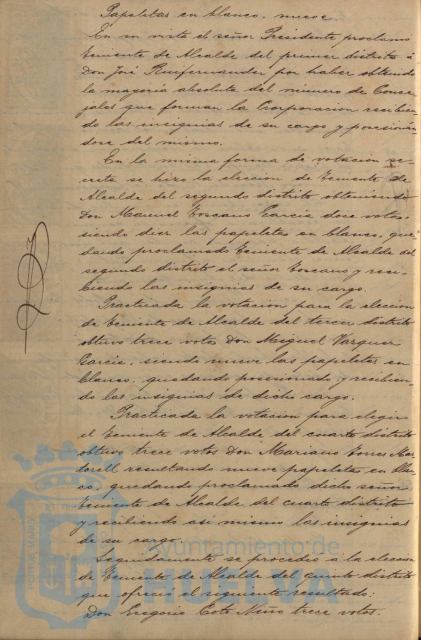 Papeletas en blanco, nueve.
En su vista el señor Presidente proclamó
teniente de Alcalde del primer distrito á
Don José por haber obtenido
la mayoría absoluta del número de Conce-
jales que forman la Corporacion recibien-
do las insignias de su cargo y posesionan-
dose del mismo.
En la misma forma de votacion se-
creta se hizo la eleccion de teniente de
Alcalde del segundo distrito obteniendo
Don Manuel Toscano Garcia doce votos,
siendo diez las papeletas en blanco, que-
dando proclamado teniente de Alcalde del
segundo distrito el señor Toscano y reci-
biendo las insignias de su cargo.
Practicada la votacion para la eleccion
de teniente de Alcalde del tercer distrito
obtuvo trece votos Don Miguel Vazquez
Garcia, siendo nueve las papeletas en
blanco, quedando posesionado y recibien-
do las insignias de dicho cargo.
Practicada la votacion para elegir
el teniente de Alcalde del cuarto distrito
obtuvo trece votos Don Mariano Torres
resultando nueve papeletas en blan-
co, quedando proclamado dicho señor
teniente de Alcalde del cuarto distrito
y recibiendo asi mismo las insignias
de su cargo.
Seguidamente se procedió a la eleccion
de teniente de Alcalde del quinto distrito
que ofreció el siguiente resultado:
Don Gregorio trece votos.
Ayuntamiento de